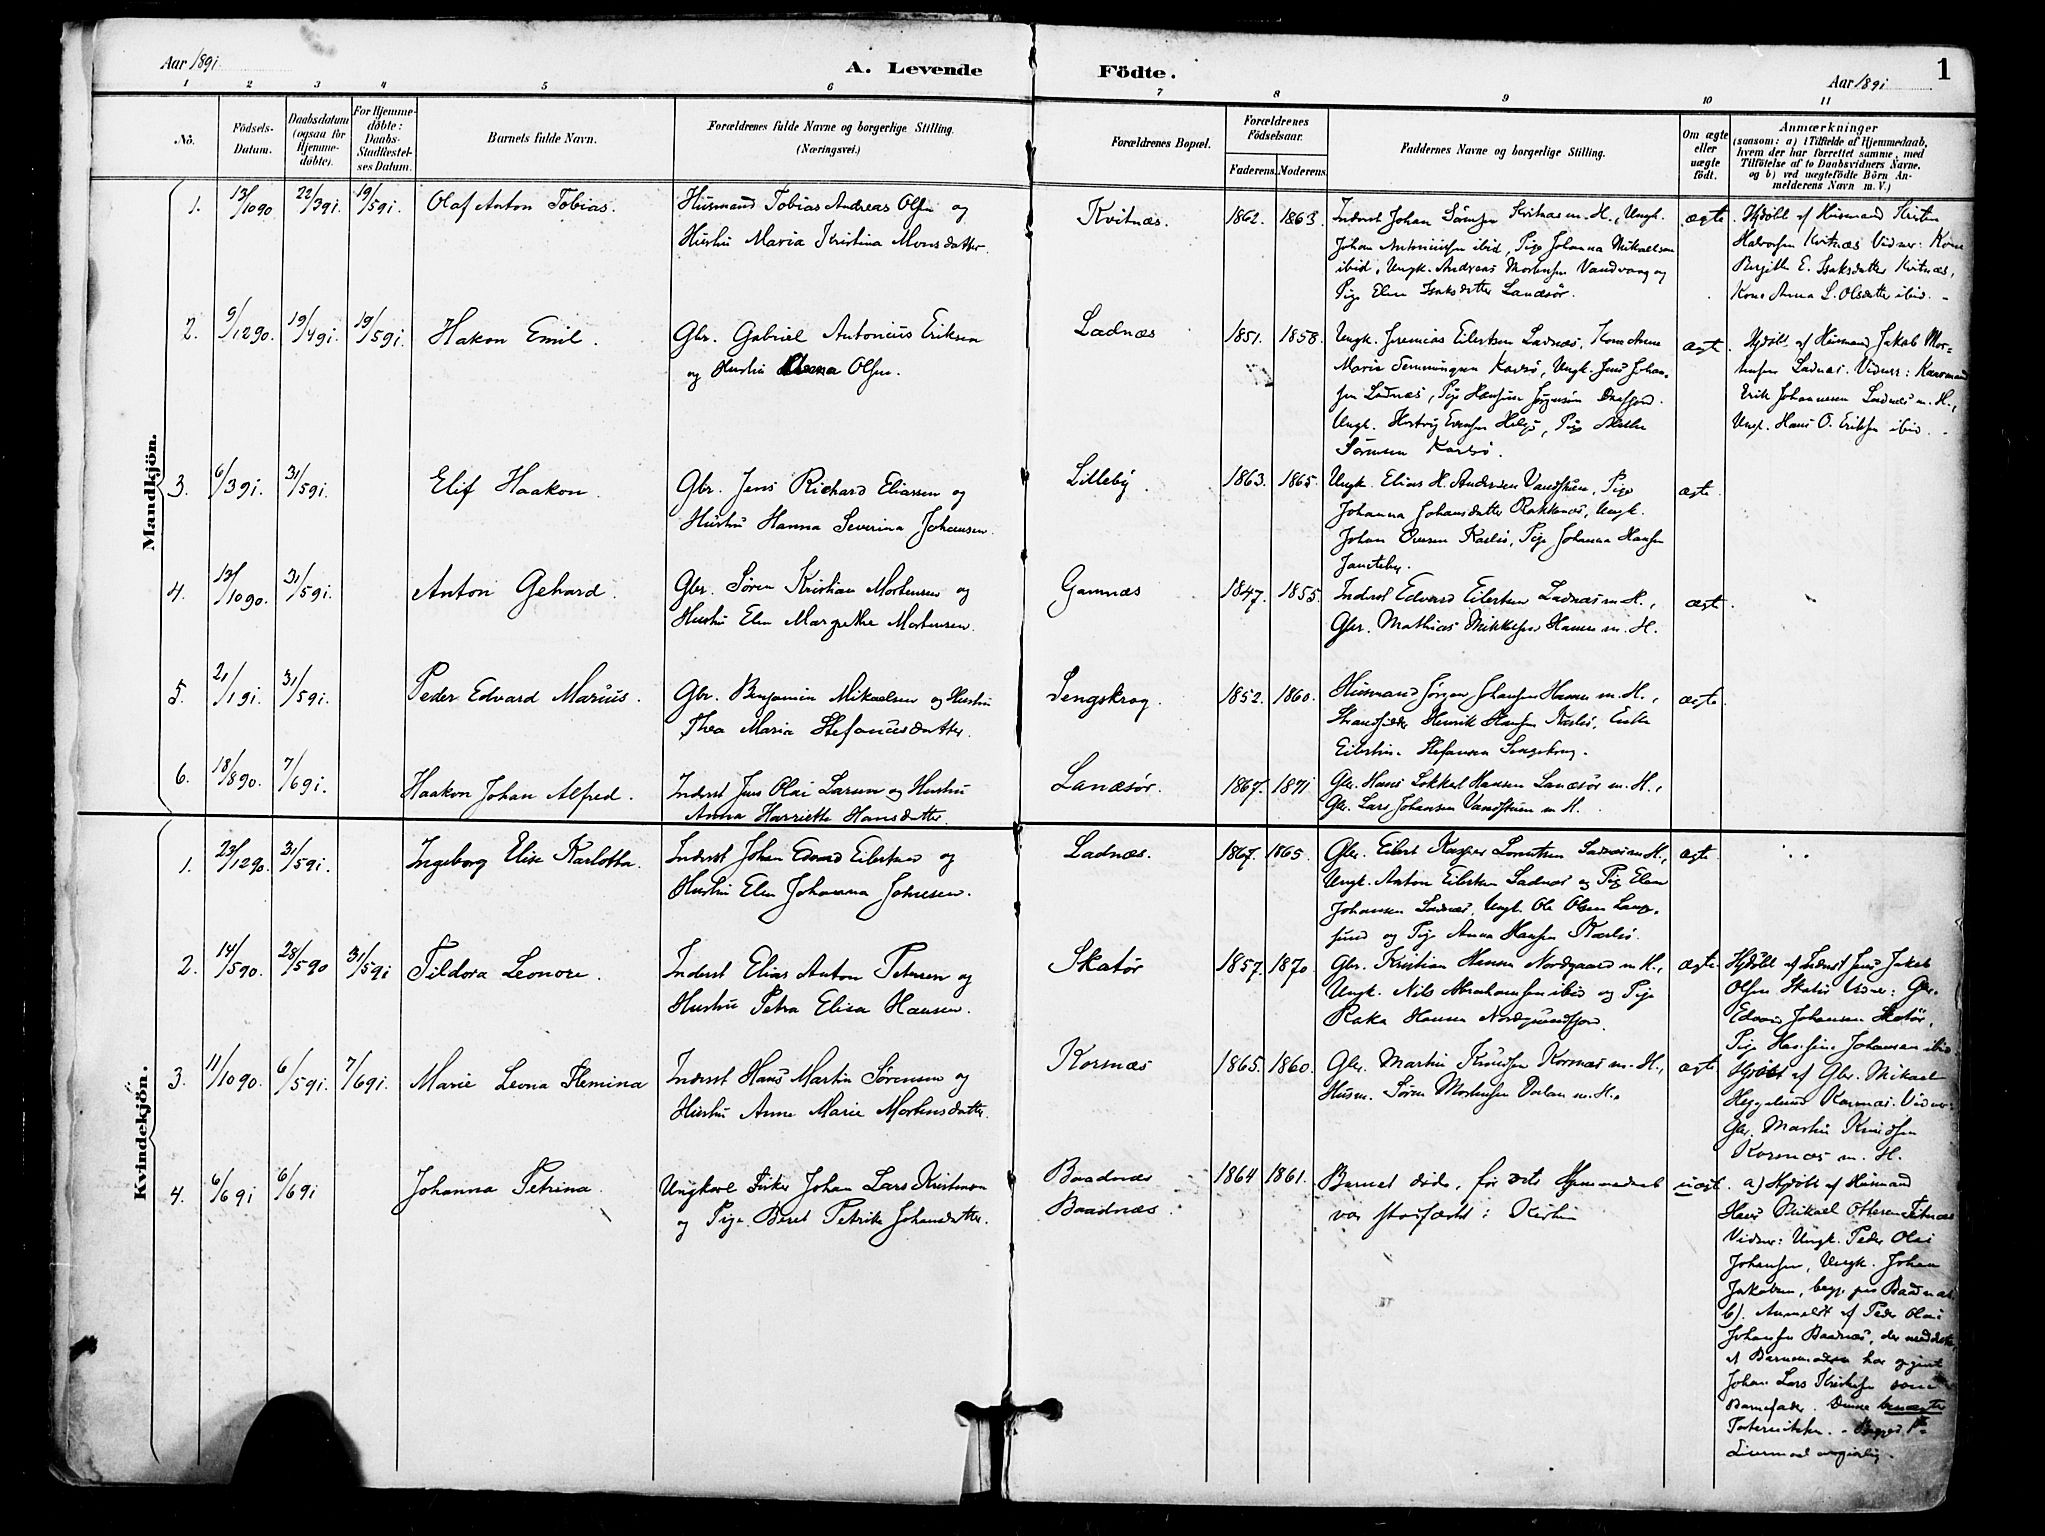 Aar 1891
A. Levende Födte.
Aar 1891
1
1 2 3 4 5 6 7 8 9 10 11
No.
Födsels-Datum.
Daabsdatum (ogsaa for Hjemme-døbte).
For Hjemme-døbte: Daabs-Stadfæstelses Datum.
Barnets fulde Navn.
Forældrenes fulde Navne og borgerlige Stilling. (Næringsvei.)
Forældrenes Bopæl.
Forældrenes Födselsaar.
Faderens. Moderens.
Faddernes Navne og borgerlige Stilling.
Om ægte eller uægte födt.
Anmærkninger
(saasom: a) i Tilfælde af Hjemmedaab, hvem der har forrettet samme, med Tilföielse af to Daabsvidners Navne, og b) ved uægtefödte Börn Anmelderens Navn m. V.)
Mandkjön.
1. 13/10 90 22/3 91. 19/5 91. Olaf Anton Tobias.
Husmand Tobias Andreas Olsen og
Hustru Maria Kristina Monsdatter.
Kvitnæs. 1862. 1863.
Inderst Johan Sörnsen Kvitnæs m. H., Ungk.
Johan Antoniussen ibid, Pige Johanna Mikaelsen
ibid, Ungk. Andreas Mortensen Vandvaag og
Pige Elen Isaksdatter Lanæsør.
ægte
Hjdöbt af Husmand Kristen
Halvorsen Kvitnæs Vidner: Kone
Birgitte E. Isaksdatter Kvitnæs,
Kone Anna L. Olsdatter ibid.
2. 9/12 90. 19/4 91. 19/5 91. Hakon Emil.
Gbr. Gabriel Antonius Eriksen
og Hustru Olsen.
Ladnæs 1851. 1858.
Ungk. Jeremias Eilertsen Ladnæs, Kone Anne
Maria Karlsö, Ungk. Jens Johan-
sen Ladnæs, Pige Hansine Jörgensen
Ungk. Hartvig Evensen Helgö, Pige
Sörensen Karlsö.
ægte.
Hjdöbt af Husmand Jakob Mor-
tensen Ladnæs. Vidner: Kaarmand
Erik Johannesen Ladnæs m. H.,
Ungk. Hans O. Eriksen ibid.
3. 6/3 91. 31/5 91. Elif Haakon.
Gbr. Jens Richard Eliassen og
Hustru Hanna Severina Johansen.
Lilleby. 1863. 1865.
Ungk. Elias H. Andersen Vandstuen, Pige
Johanna Johansdatter Bakkenæs, Ungk.
Johan Karlsö, Pige Johanna Hansen
ægte.
4. 13/10 90. 31/5 91. Anton Gehard.
Gbr. Sören Kristian Mortensen og
Hustru Elen Margrethe Mortensen.
Gamnæs 1847. 1855.
Inderst Edvard Eilertsen Ladnæs m. H.,
Gbr. Mathias Mikkelsen Hamre m. H.
ægte.
5. 21/1 91. 31/5 91. Peder Edvard Marius.
Gbr. Benjamin Mikaelsen og Hustru
Thea Maria Stefanusdatter.
Sengskrog. 1852. 1860.
Husmand Jörgen Johansen Hamre m. H.,
Henrik Hansen Karlsö, Enke
Stefansen Sengskrog.
ægte.
6. 18/8 90. 7/6 91. Haakon Johan Alfred.
Inderst Jens Olai Larsen og Hustru
Anna Harriette Hansdatter.
Lanæsør. 1867. 1871
Gbr. Hans Lokkert Hansen Lanæsør m. H.,
Gbr. Lars Johansen Vandstuen m H.
Kvindekjön.
1. 23/12 90. 31/5 91. Ingeborg Elise Karlotta.
Inderst Johan Edvard Eilertsen og
Hustru Elen Johanna Johnesen.
Ladnæs. 1867. 1865.
Gbr. Eilert Kasper Lorentsen Ladnæs m H.,
Ungk. Anton Eilertsen Ladnæs og Pige Elen
Johansen Ladnæs, Ungk. Ole Olsen Lang-
sund og Pige Anna Hansen Karlsö.
ægte
2. 14/5 90. 28/5 90 31/5 91 Tildora Leonore.
Inderst Elias Anton Petersen og
Hustru Petra Elisa Hansen.
Skatør 1857. 1870.
Gbr. Kristian Hansen Nordgaard m. H.,
Ungk. Nils Abrahamsen ibid og Pige
Raka Hansen
ægte.
Hjdöbt af Inderst Jens Jakob
Olsen Skatør Vidner: Gbr.
Edvard Johansen Skatør,
Pige Hansine Johansen ibid
3. 11/10 90. 6/5 91. 7/6 91. Marie Leona Flemina
Inderst Hans Martin Sørensen og
Hustru Anne Marie Mortensdatter.
Kornæs 1865. 1860.
Gbr. Martin Knudsen Kornæs m. H.,
Husm. Sören Mortensen Dalan m. H.
ægte
Hjdöbt af Gbr. Mikael
Heggelund Kornæs. Vidner:
Gbr. Martin Knudsen
Kornæs m. H.
4. 6/6 91 6/6 91 Johanna Petrina.
Ungkarl Fisker Johan Lars Kristensen
og Pige Beret Petrike Johansdatter.
Baadnæs
Baadnæs.
1864 1861.
Barnet døde, før dets Hjemmedaab
var stadfæstet i Kirken
uægt.
a) Hjdöbt af Husmand
Hans Mikael Ottesen
Vidner: Ungk. Peder Olai
Johansen, Ungk. Johan
Jakobsen, begge paa Baadnæs
b). Anmeldt af Peder Olai
Johansen Baadnæs, der meddelte
at Barnemoderen har opgivet
Johan Lars Kristensen som
Barnefader. Denne benægter
Paterniteten.